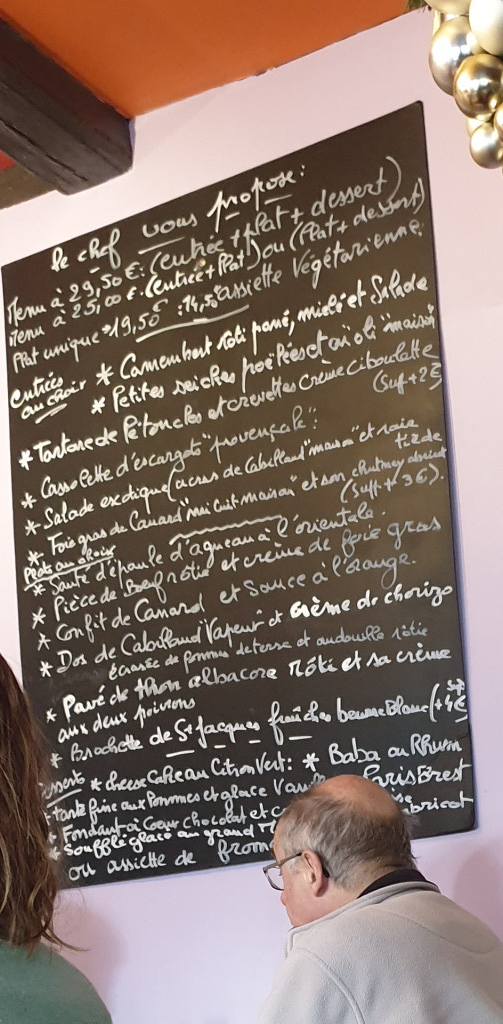 le chef vous propose:
Menu à 29,50 €: (entrée + Plat + dessert)
Menu à 25,00 €: (entrée + Plat) ou (Plat + dessert)
Plat unique → 19,50€ : 14,50 assiette végétarienne
entrées au choix
* Camembert rôti pané, miel et Salade
* Petites seiches poëlées et aïoli "maison"
* Tartare de Pétoncles et crevettes crème ciboulette
(Suf + 2€
* Cassolette d'escargots "provençale":
* Salade exotique (acras de Cabillaud "maison" et raie tiède
* Foie gras de Canard "mi cuit maison" et son chutney abricot
(Suff + 3€).
Plats au choix
* Sauté d'épaule d'agneau à l'orientale.
* Pièce de Boeuf rôtie et crème de foie gras
* Confit de Canard et Sauce à l'orange.
* Dos de Cabillaud "Vapeur" et crème de chorizo
écrasée de pommes de terre et andouille rôtie
* Pavé de thon albacore rôti et sa crème
aux deux poivrons
* Brochette de St Jacques fraîches beurre Blanc (+4€
Dessert * cheese Cake au Citron Vert: * Baba au Rhum
* tarte fine aux Pommes et glace Paris Brest
* Fondant à Coeur chocolat et abricot
* Soufflé glacé au grand
ou assiette de